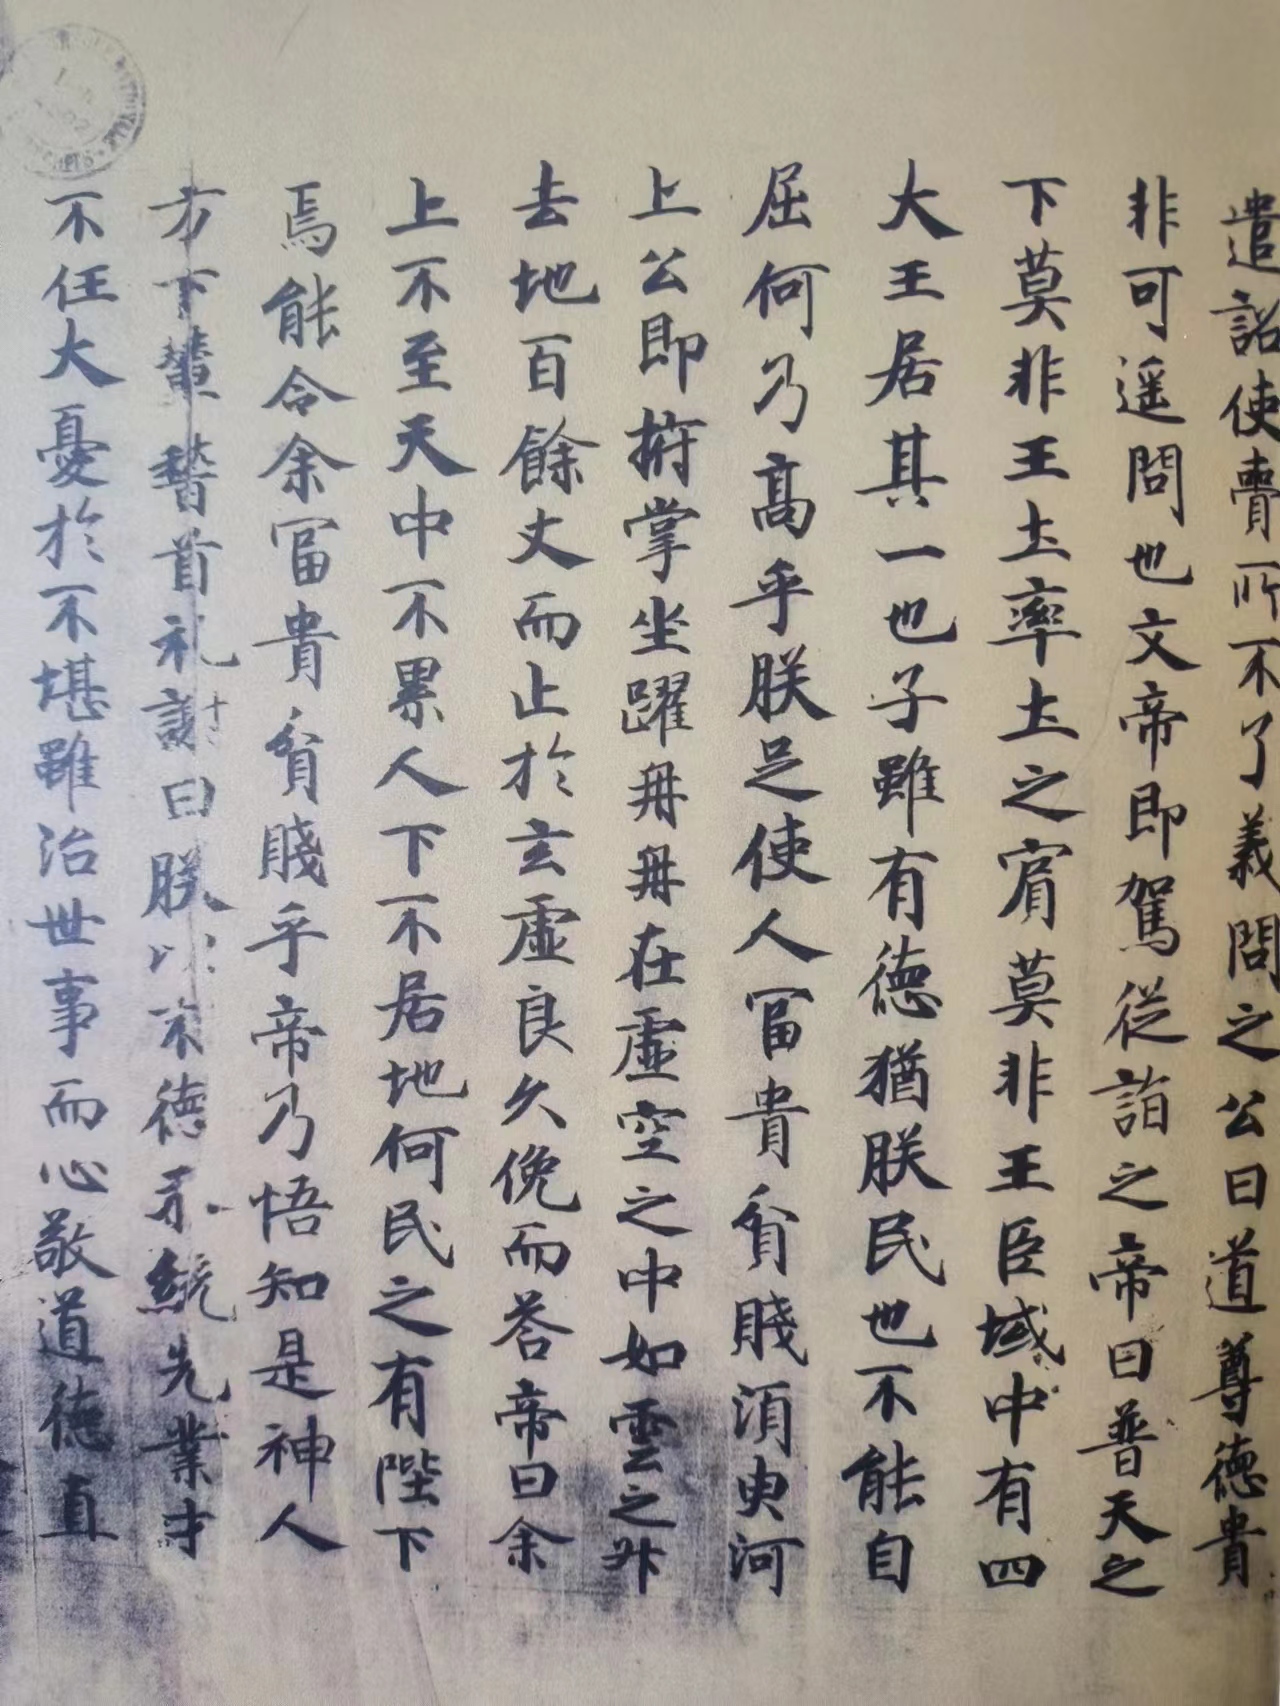 遣詔使賷所不了義問之公曰道尊德貴
非可遥問也文帝即駕従詣之帝曰普天之
下莫非王土率土之賔莫非王臣域中有四
大王居其一也子雖有德猶朕民也不能自
屈何乃髙乎朕足使人冨貴貧賤須臾河
上公即拊掌坐躍冉冉在虚空之中如雲之升
去地百餘丈而止於玄虚良久俛而荅帝曰余
上不至天中不累人下不居地何民之有陛下
焉能令余冨貴貧賤乎帝乃悟知是神人
方下輦稽首礼謝曰朕以不德忝統先業才
不任大憂於不堪雖治世事而心敬道德直